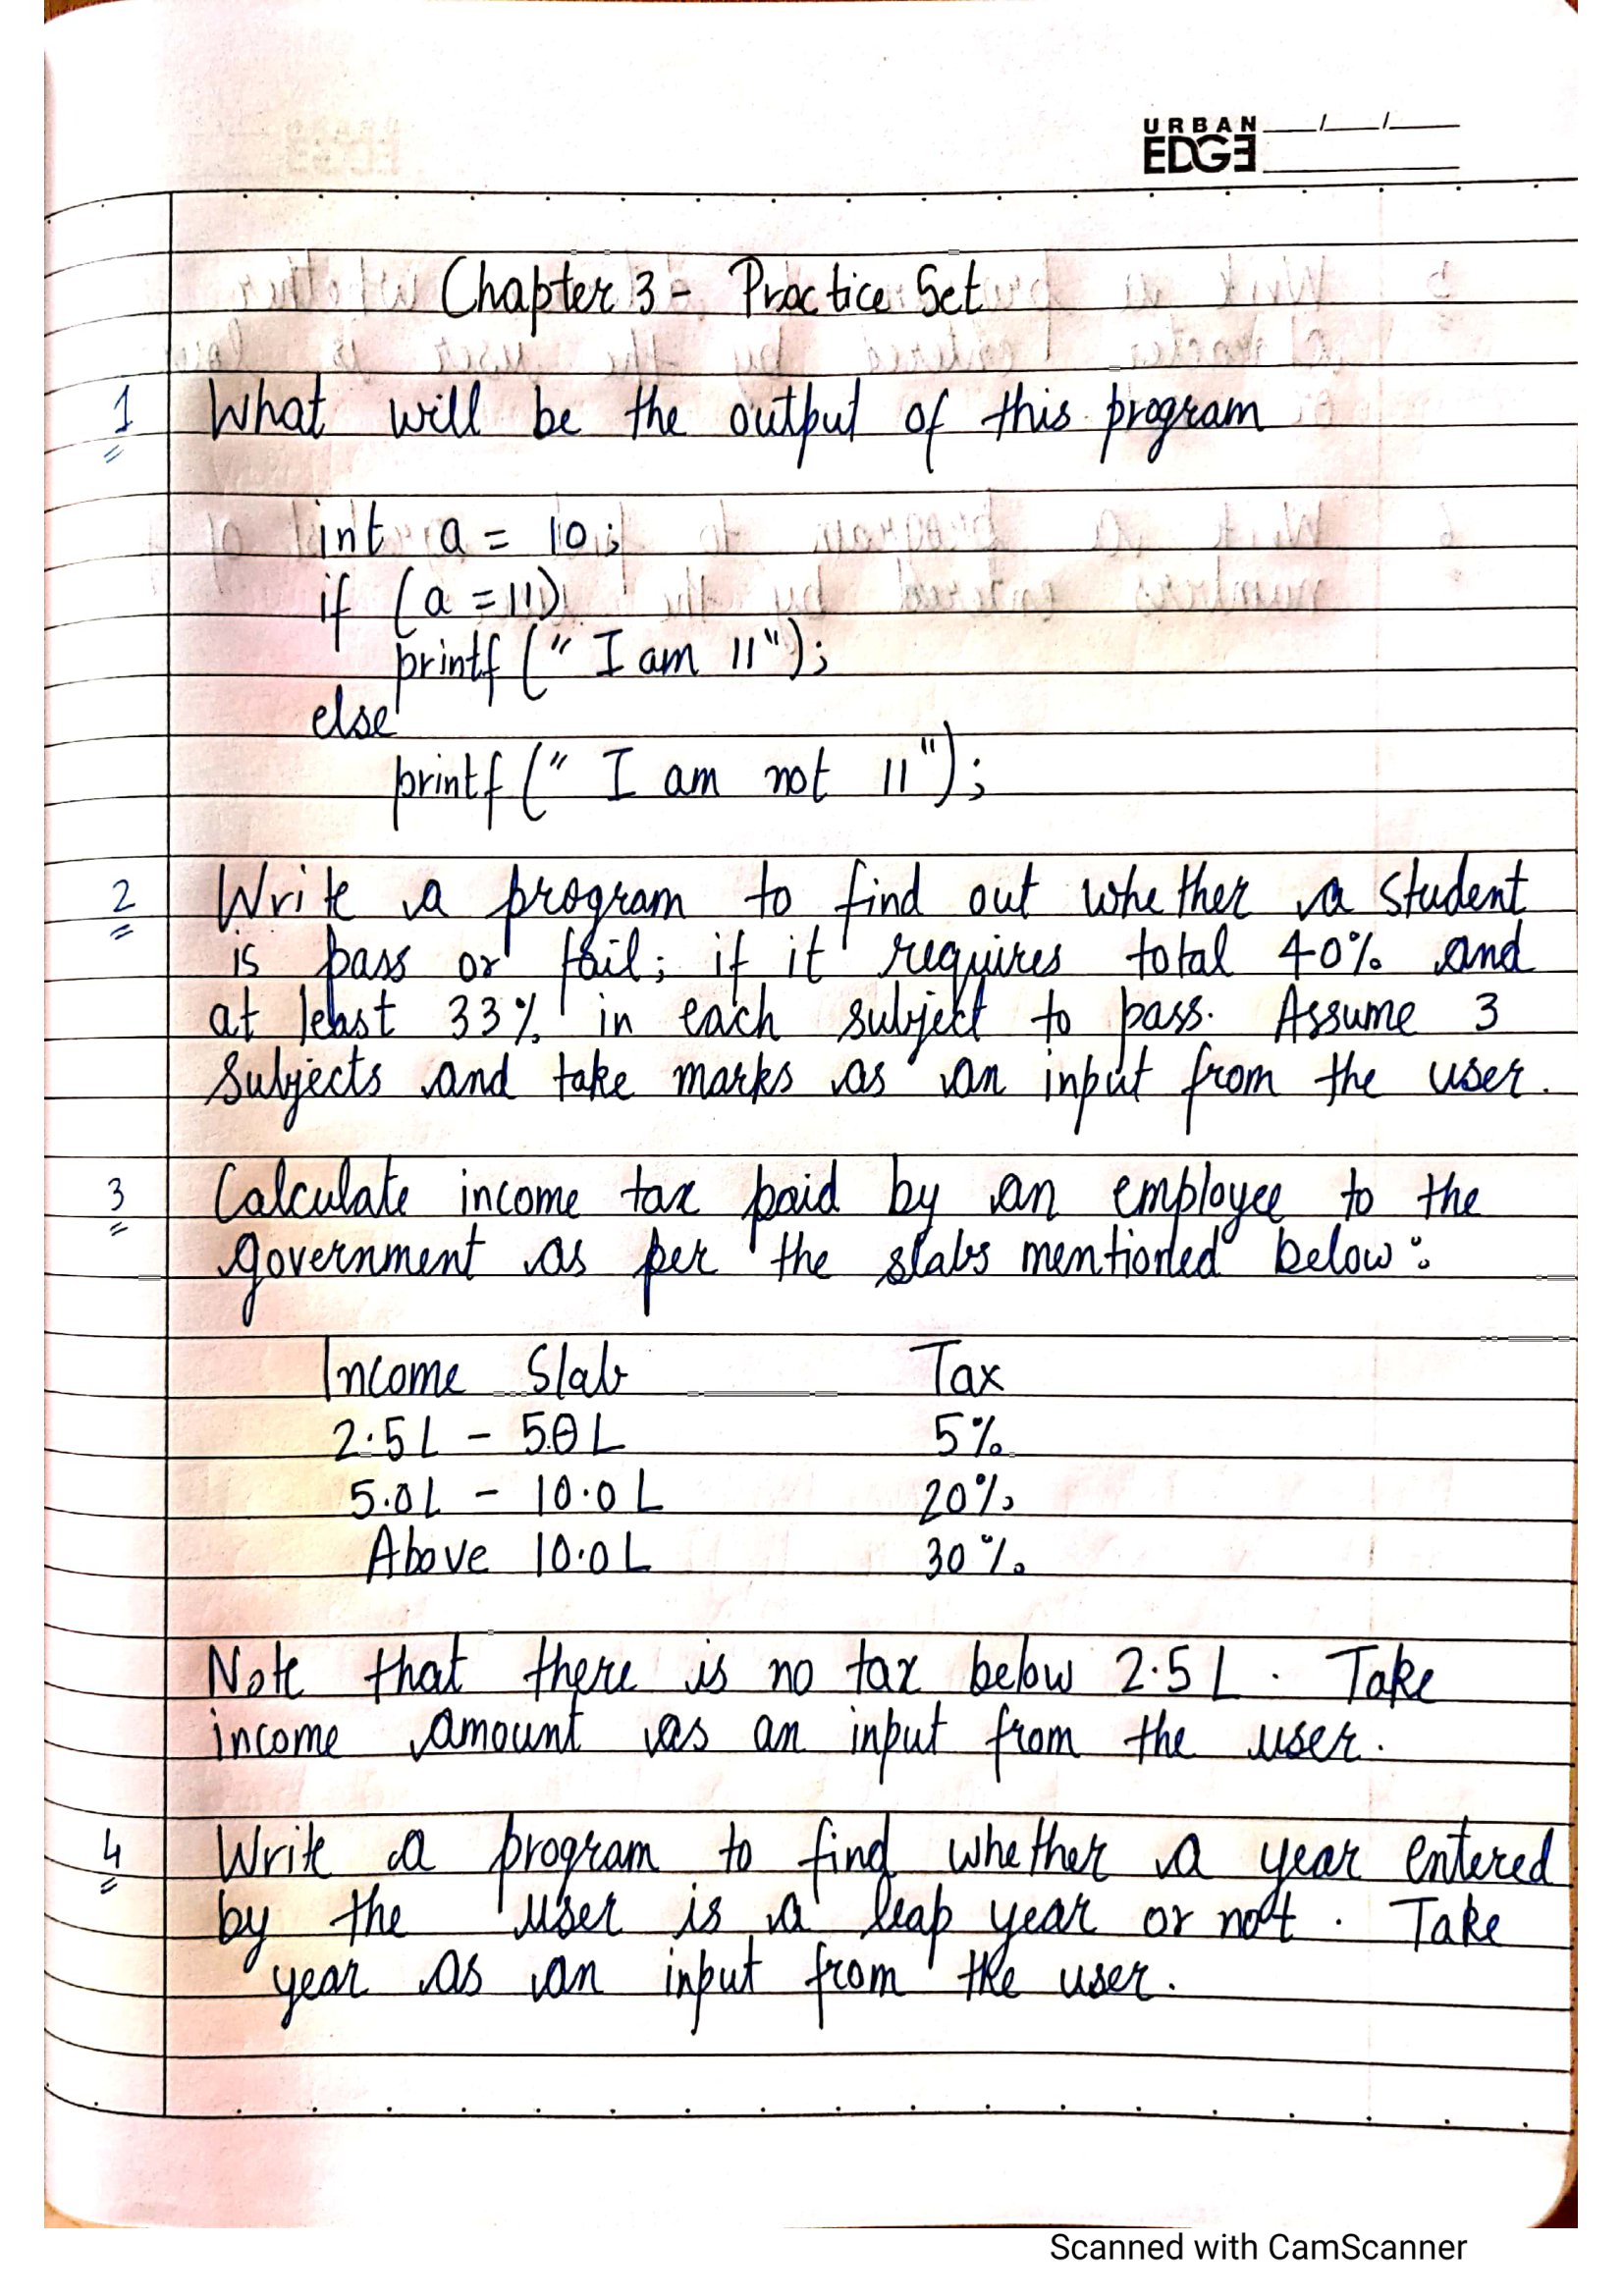 URBAN
EDGE
Chapter 3 - Practice Set
1 What will be the output of this program
int a = 10;
if (a = 11)
printf (" I am 11");
else
printf (" I am not 11");
2 Write a program to find out whether a student
is pass or fail; if it requires total 40% and
at least 33% in each subject to pass. Assume 3
Subjects and take marks as an input from the user.
3 Calculate income tax paid by an employee to the
government as per the slabs mentioned below:
Income Slab Tax
2.5L - 5.0L 5%
5.0L - 10.0L 20%
Above 10.0L 30%
Note that there is no tax below 2.5L. Take
income amount as an input from the user.
4 Write a program to find whether a year entered
by the user is a leap year or not. Take
year as an input from the user.
Scanned with CamScanner